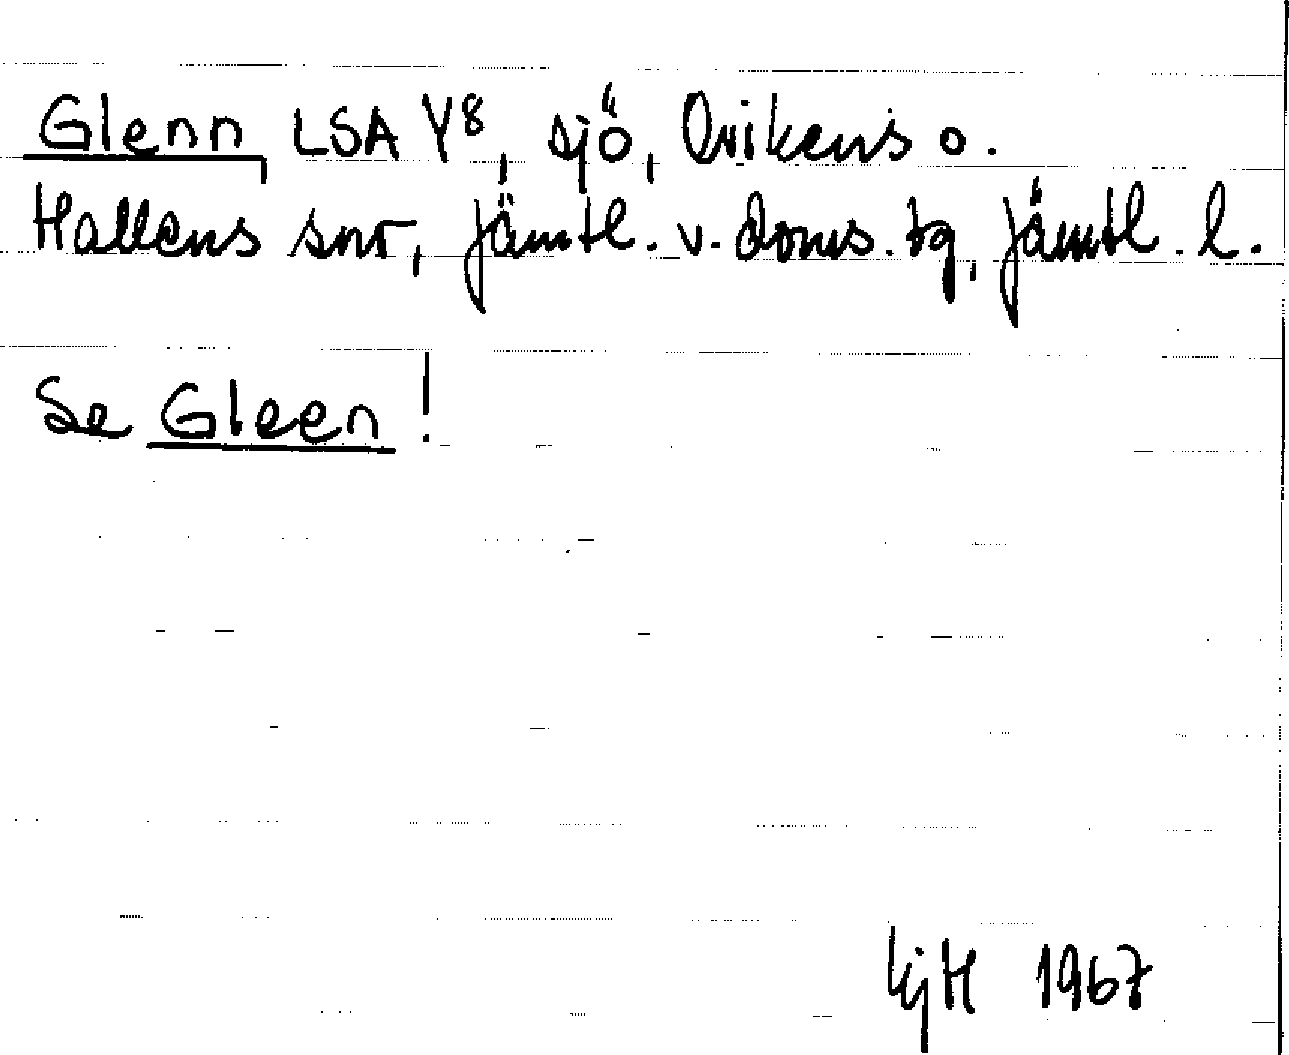 Glenn, LSA Y8, sjö, Ovikens o.
Hallens snr, Jämtl. v. doms. tg, Jämtl. l.
Se Gleen!
1967